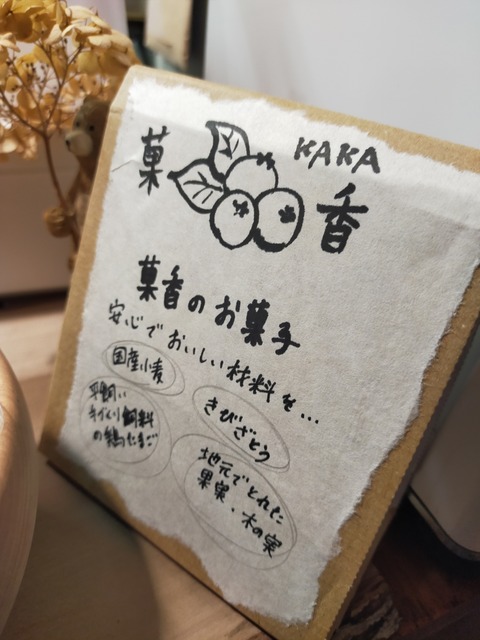 菓香
KAKA
菓香のお菓子
安心でおいしい材料を…
国産小麦
きびざとう
平飼い
手づくり飼料
の鶏たまご
地元でとれた
果実・木の実